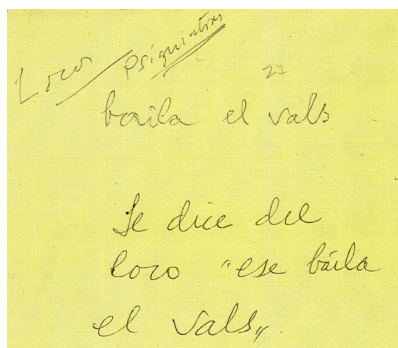 Loco psiquiatras
27
baila el vals
Se dice del
loco "ese báila
el vals".